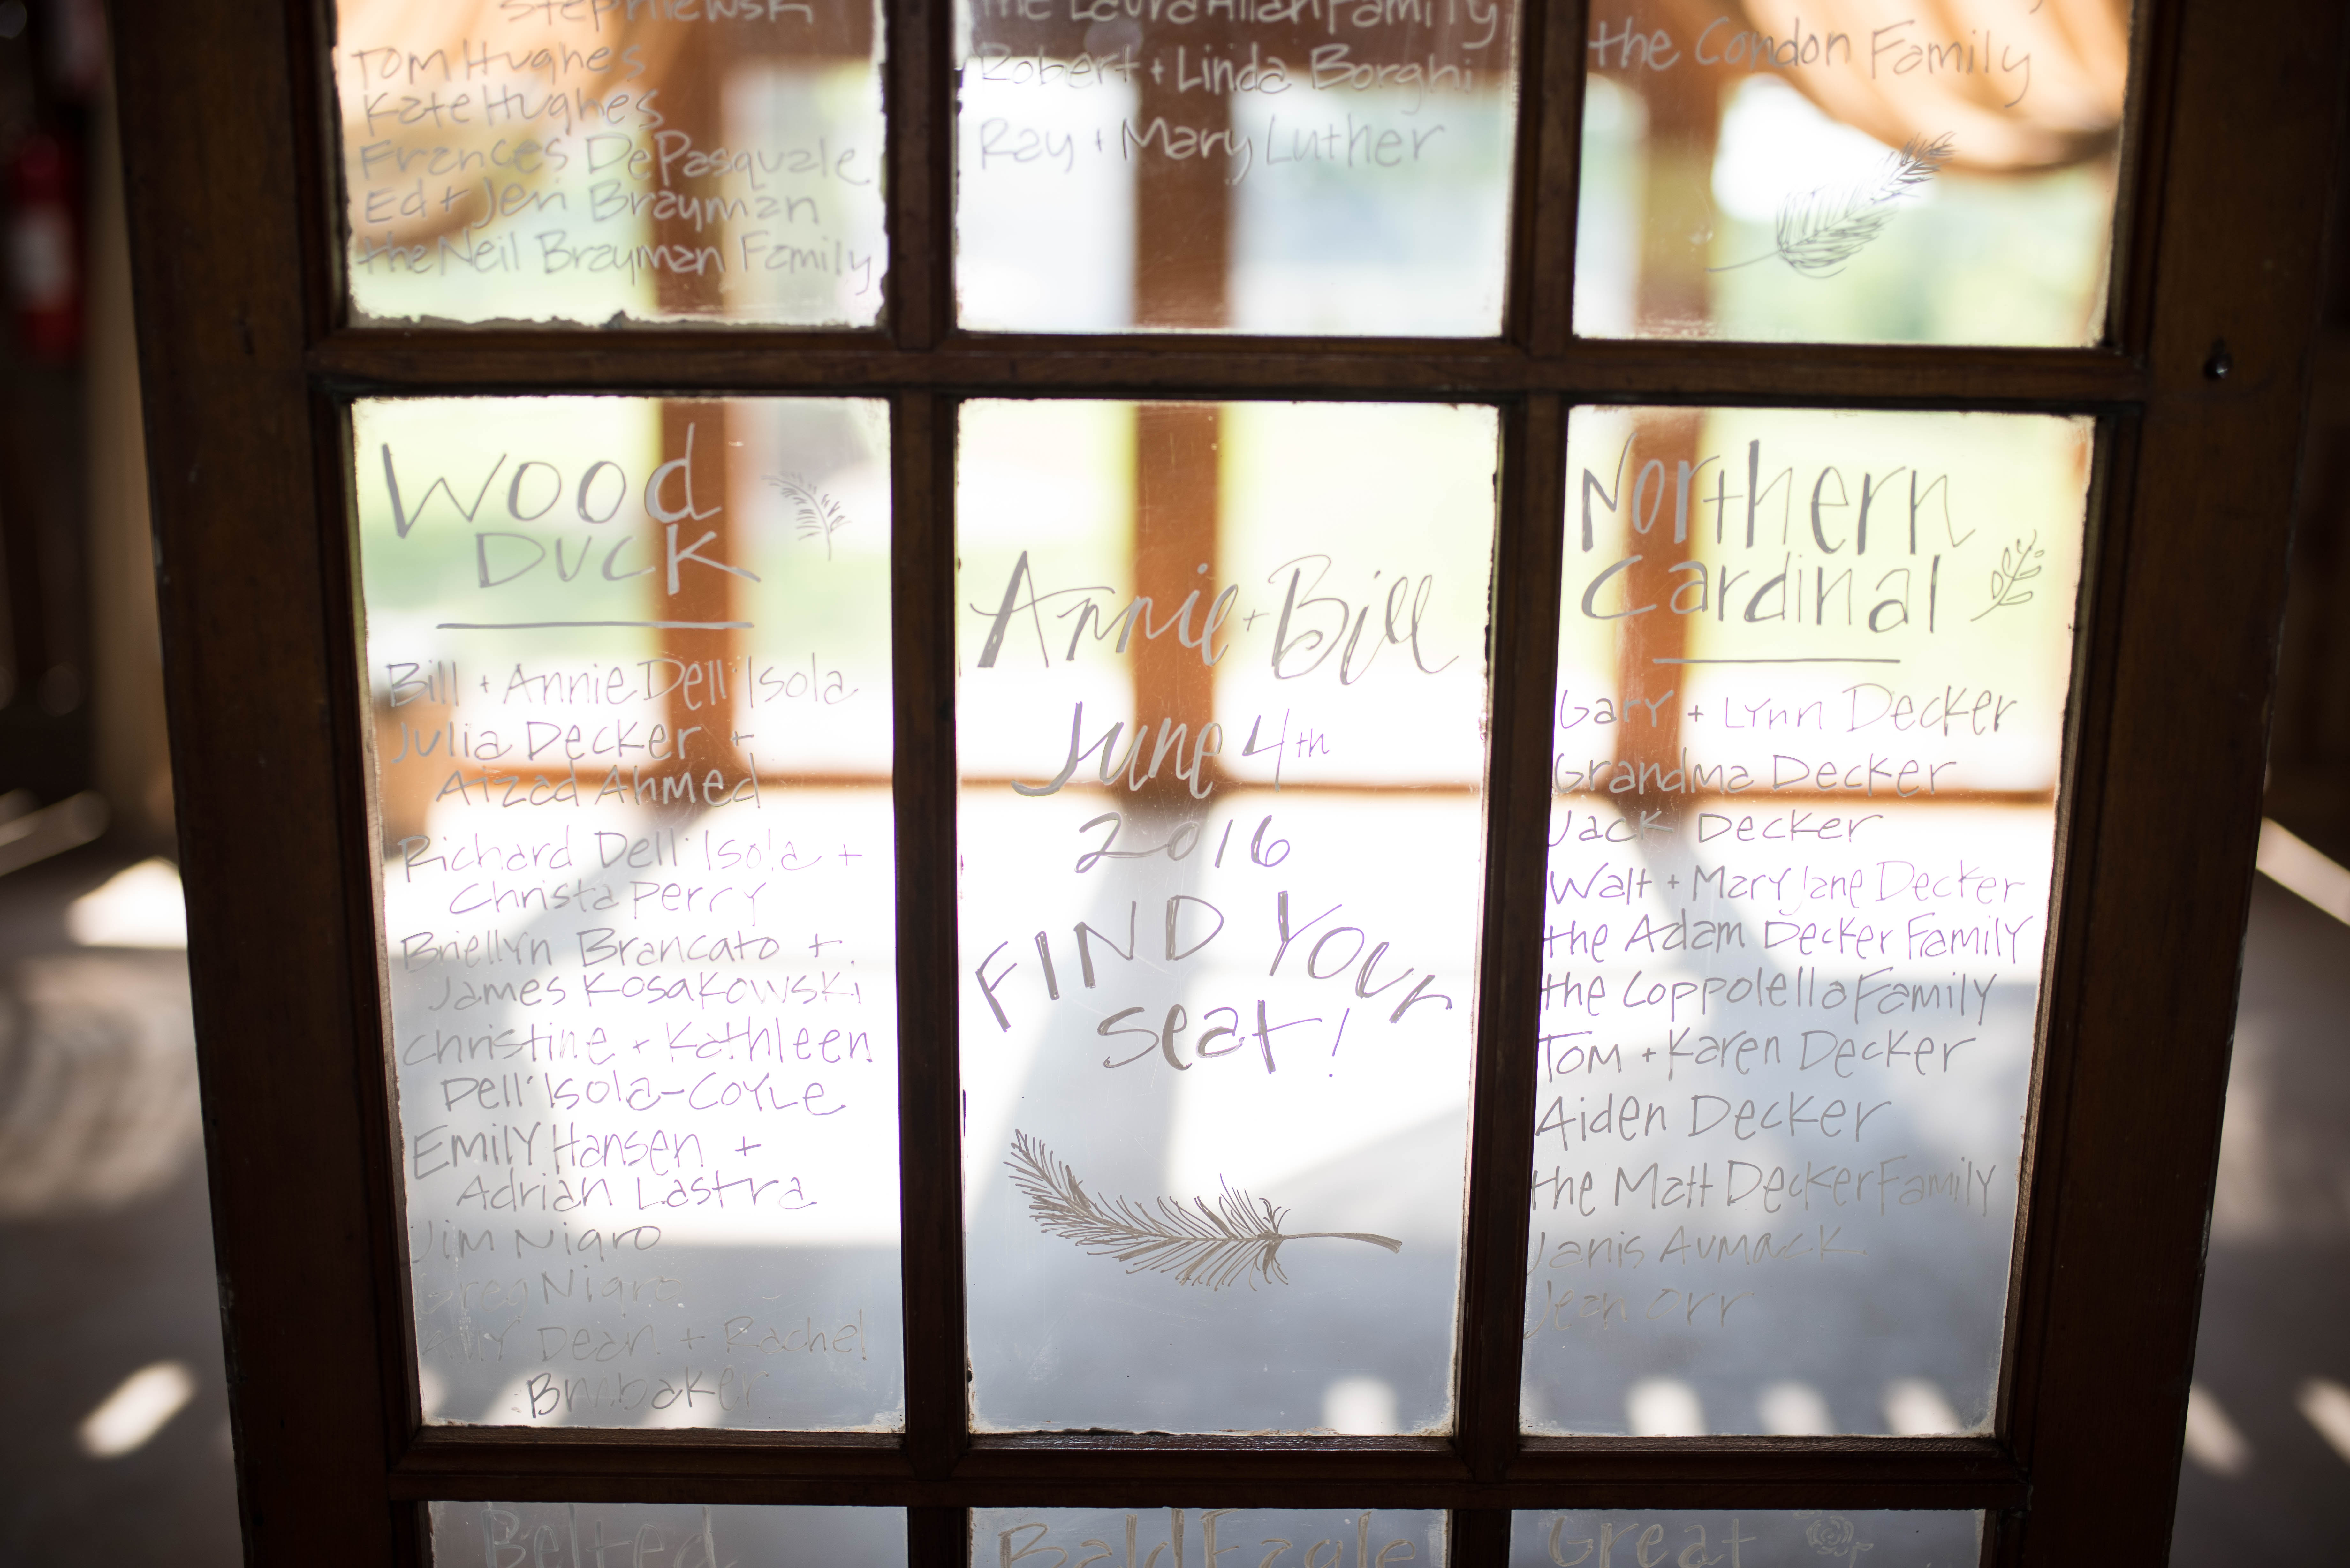 Stepniewski
Tom Hughes
Kate Hughes
Frances DePasquale
Ed + Jen Brayman
the Neil Brayman Family
the Laura Allan Family
Robert + Linda Borghi
Ray + Mary Luther
the Condon Family
Wood
Duck
Bill + Annie Dell'Isola
Julia Decker +
Aizad Ahmed
Richard Dell'Isola +
Christa Perry
Briellyn Brancato +
James Kosakowski
Christine + Kathleen
Dell'Isola-Coyle
Emily Hansen +
Adrian Lastra
Jim Nigro
Greg Nigro
Dean + Rachel
Brubaker
Annie + Bill
June 4th
2016
FIND YOUr
seat!
Northern
Cardinal
Gary + Lynn Decker
Grandma Decker
Jack Decker
Walt + Mary Jane Decker
the Adam Decker Family
the Coppolella Family
Tom + Karen Decker
Aiden Decker
the Matt Decker Family
Janis Aumack
Jean Orr
Belted
Bald Eagle
Great